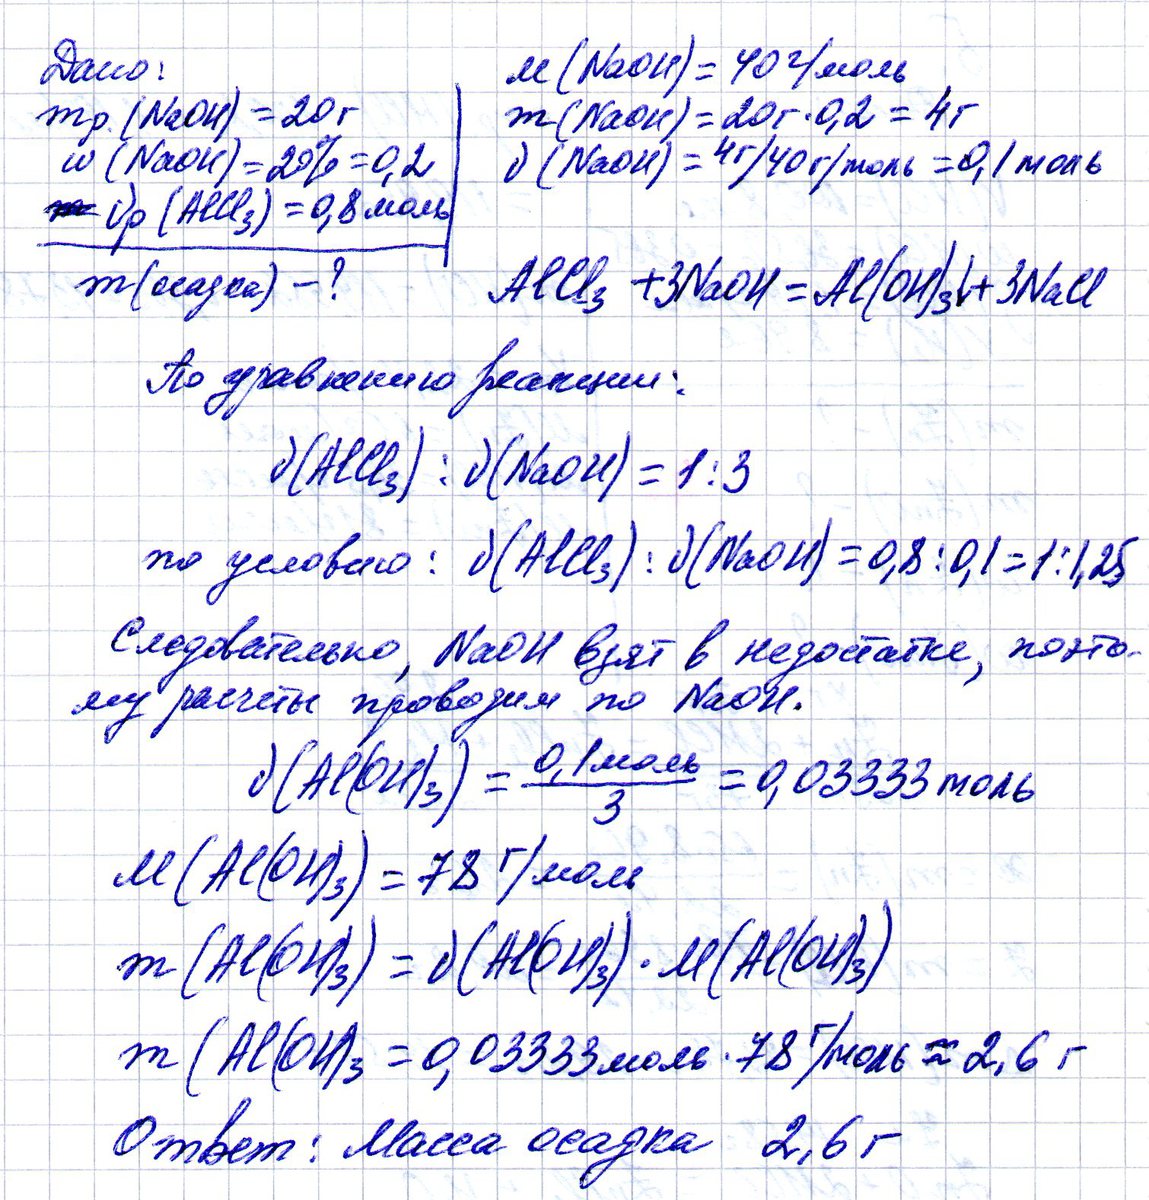 Дано:
mр.(NaOH) = 20г
w(NaOH) = 20% = 0,2
νр(AlCl₃) = 0,8 моль
m(осадка) - ?
M(NaOH) = 40г/моль
m(NaOH) = 20г·0,2 = 4г
ν(NaOH) = 4г/40г/моль = 0,1 моль
AlCl₃ + 3NaOH = Al(OH)₃↓ + 3NaCl
По уравнению реакции:
ν(AlCl₃) : ν(NaOH) = 1:3
по условию: ν(AlCl₃) : ν(NaOH) = 0,8:0,1 = 1:1,25
Следовательно, NaOH взят в недостатке, поэто-
му расчеты проводим по NaOH.
ν(Al(OH)₃) = 0,1моль/3 = 0,03333 моль
M(Al(OH)₃) = 78 г/моль
m(Al(OH)₃) = ν(Al(OH)₃)·M(Al(OH)₃)
m(Al(OH)₃ = 0,03333 моль·78 г/моль ≈ 2,6 г
Ответ: Масса осадка 2,6 г